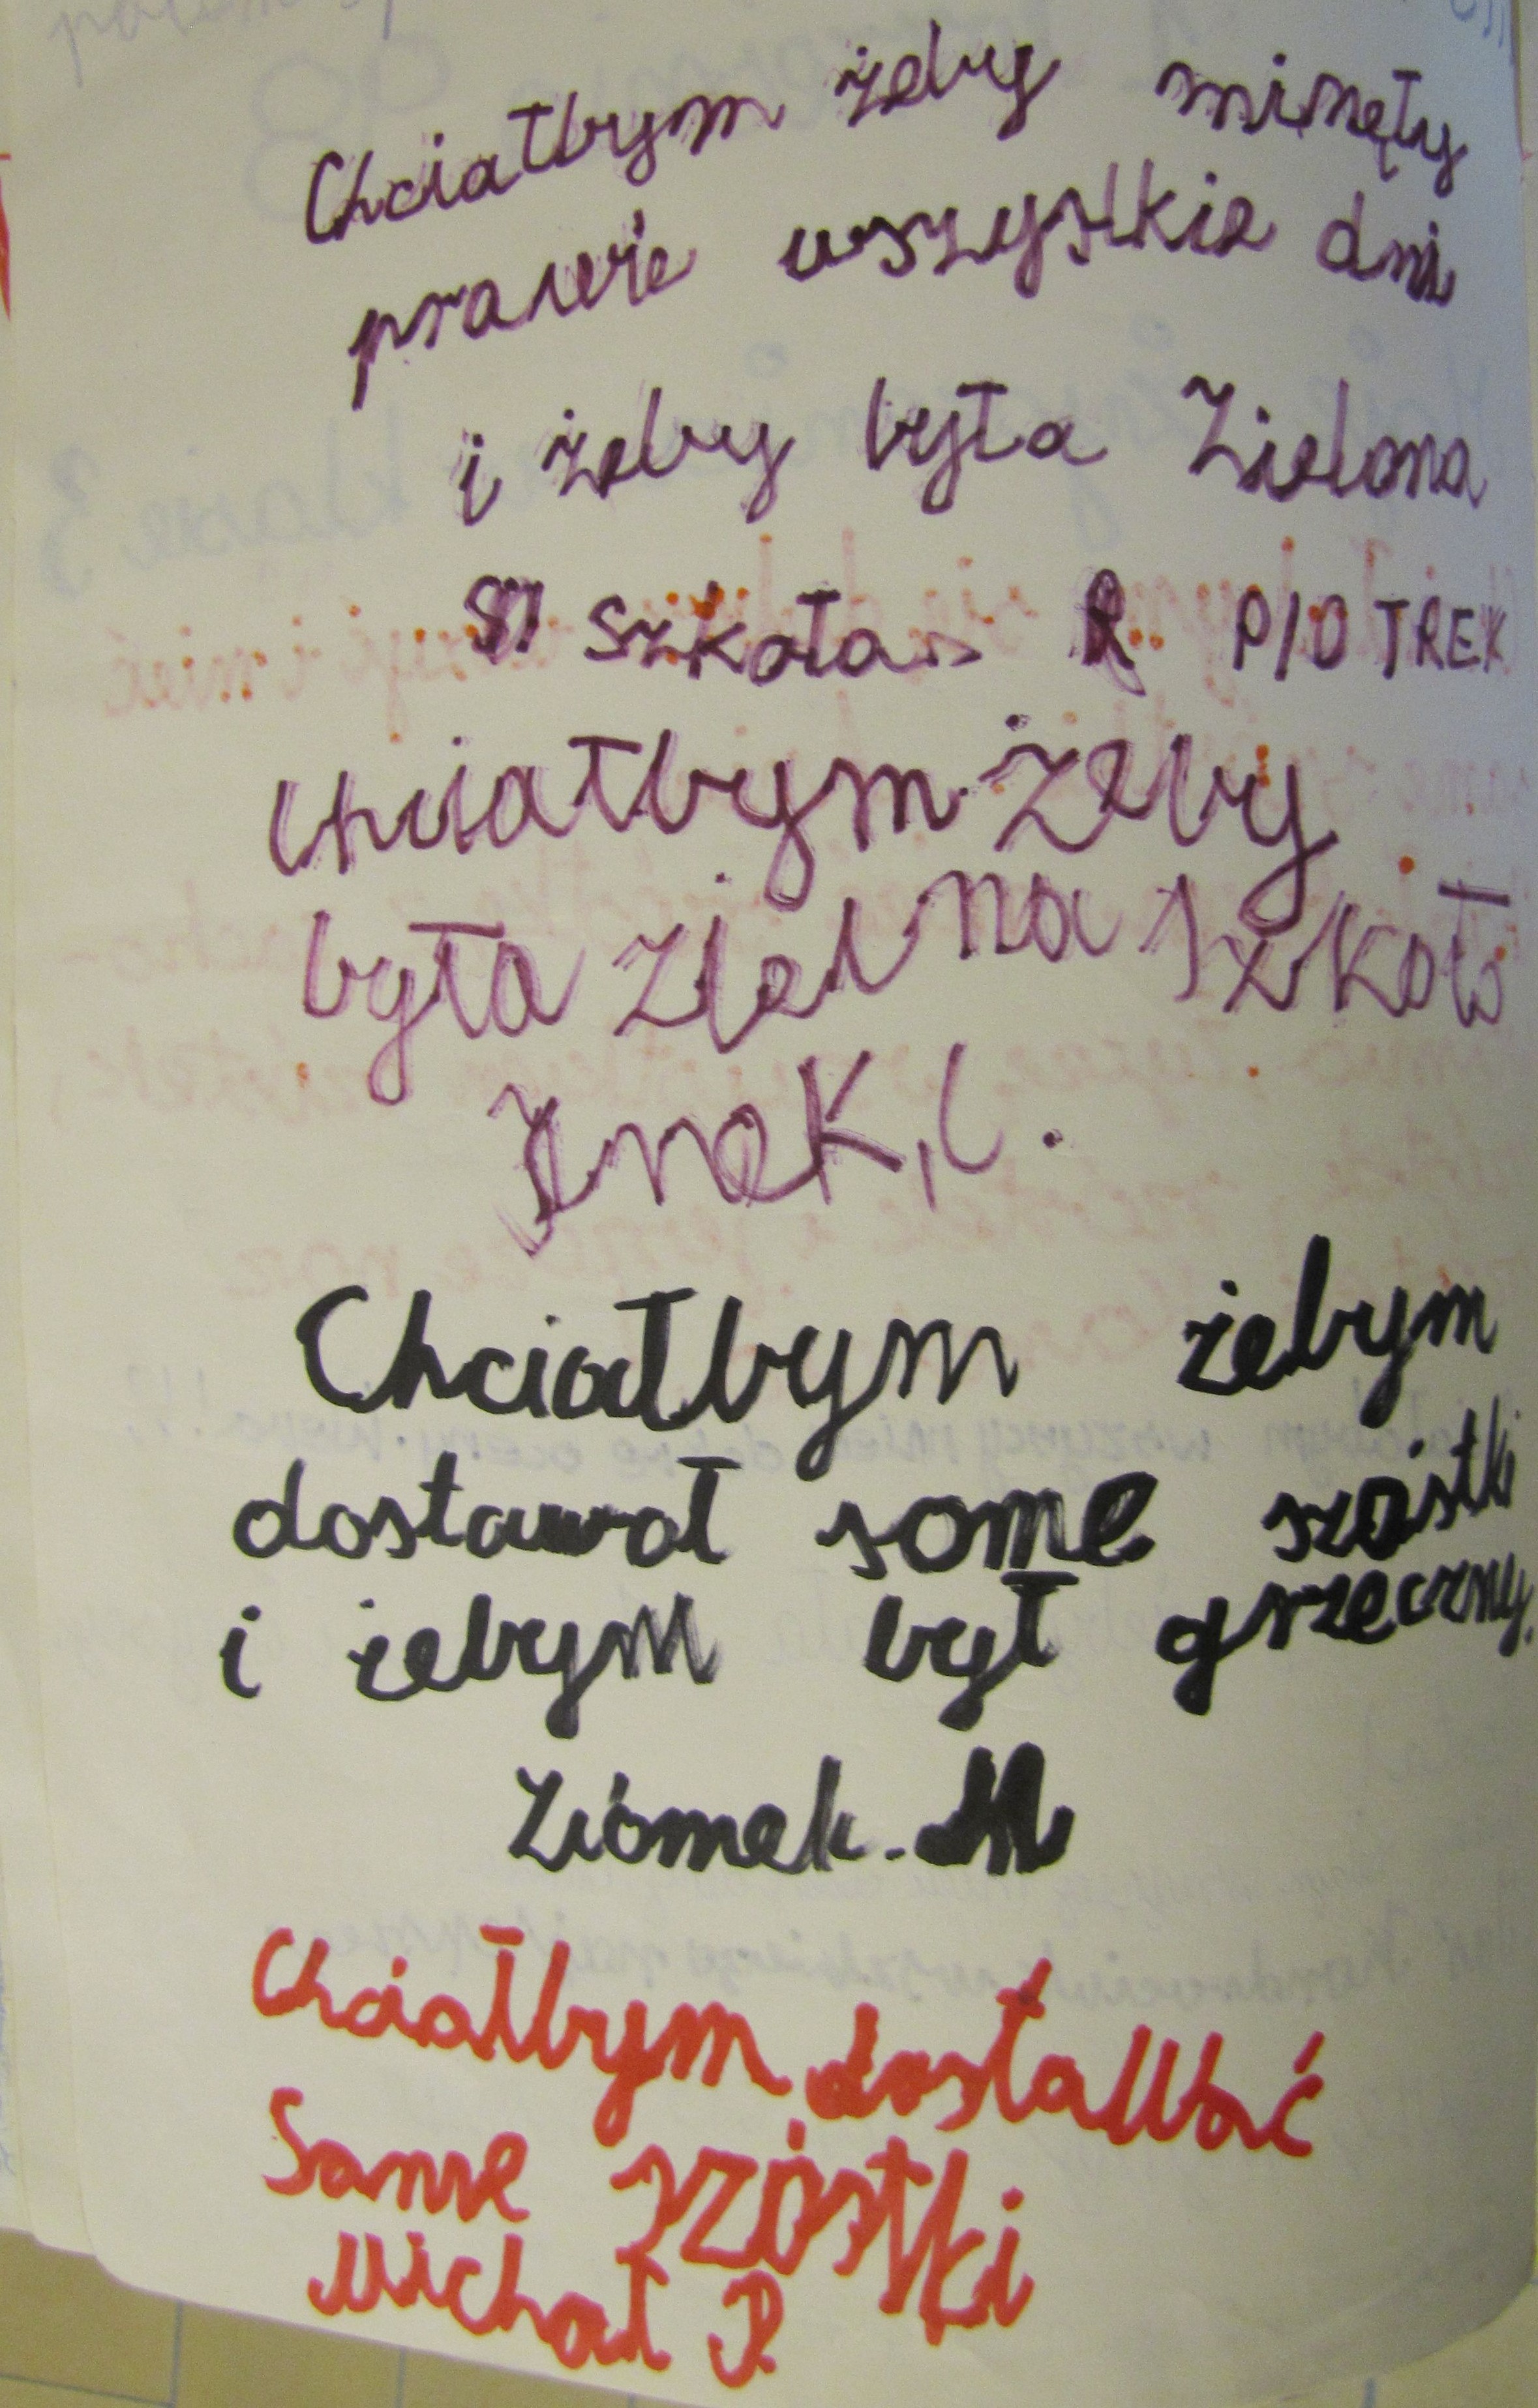 Chciałbym żeby minęły
prawie wszystkie dni
i żeby była Zielona
szkoła. R PIOTREK
Chciałbym żeby
była zielna szkoła
Chciałbym żebym
dostawał same szóstki
i żebym był grzeczny.
Ziomek. M
Chciałbym dostawać
Same szóstki
Michał P.